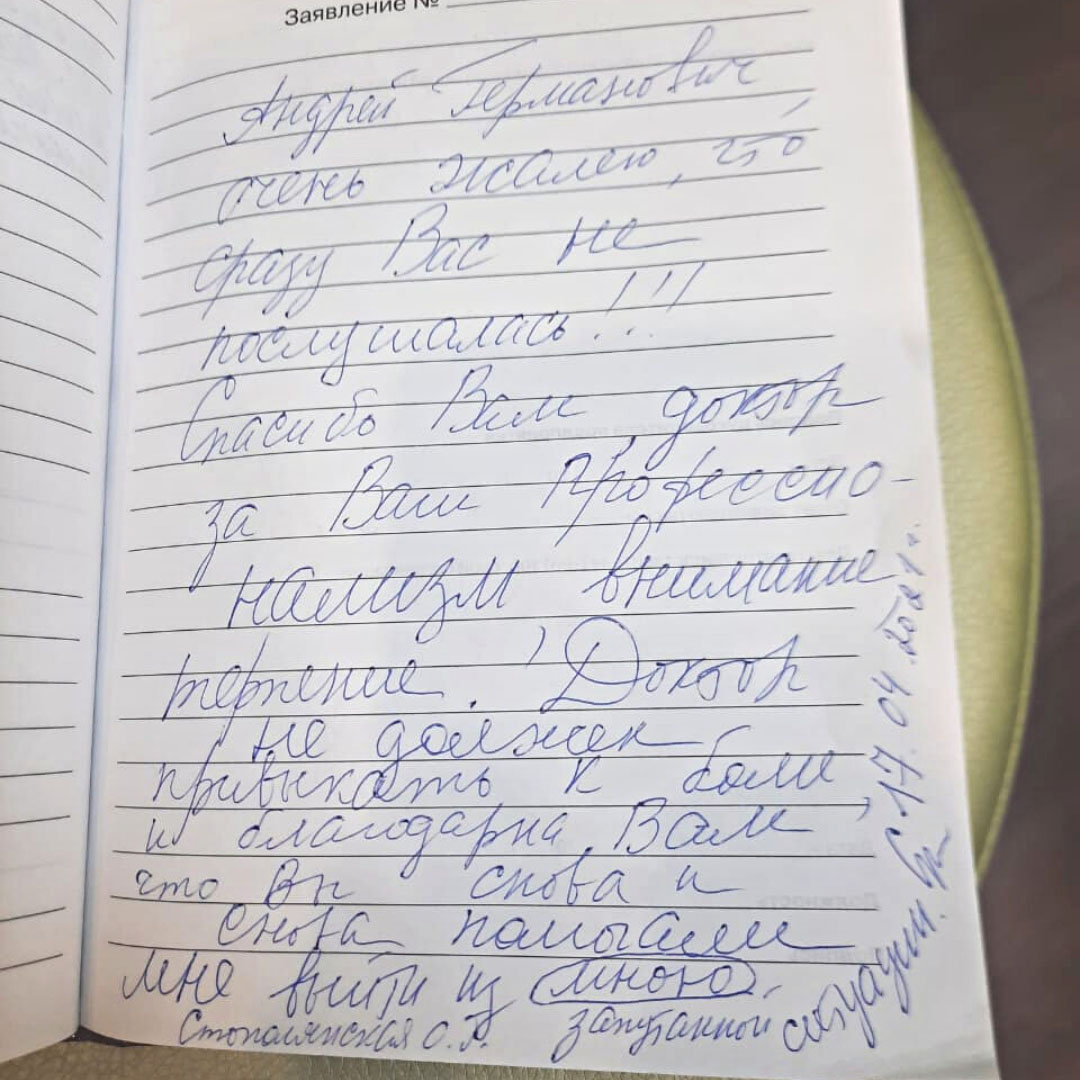 Заявление №
Андрей Германович
очень жалею, что
сразу Вас не
послушалась!!!
Спасибо Вам, доктор
за Ваш профессио-
нализм внимание,
терпение. Доктор
не должен
привыкать к боли,
и благодарна Вам
что Вы снова и
снова помогали
мне выйти из мною
запутанной ситуации.
17.04.2021г.